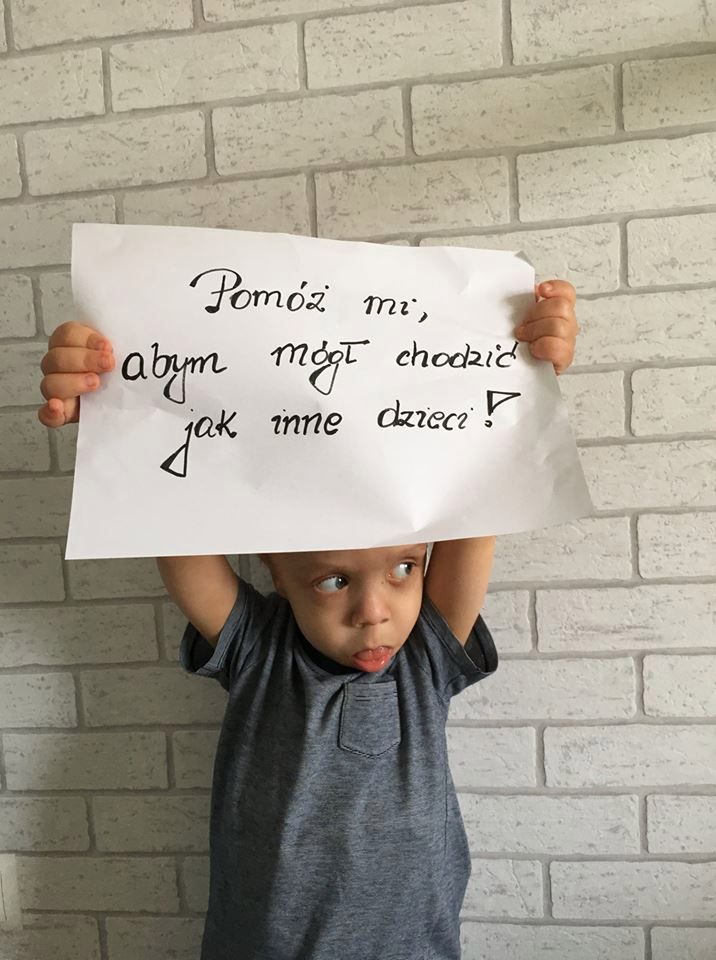 Pomóż mi,
abym mógł chodzić
jak inne dzieci!